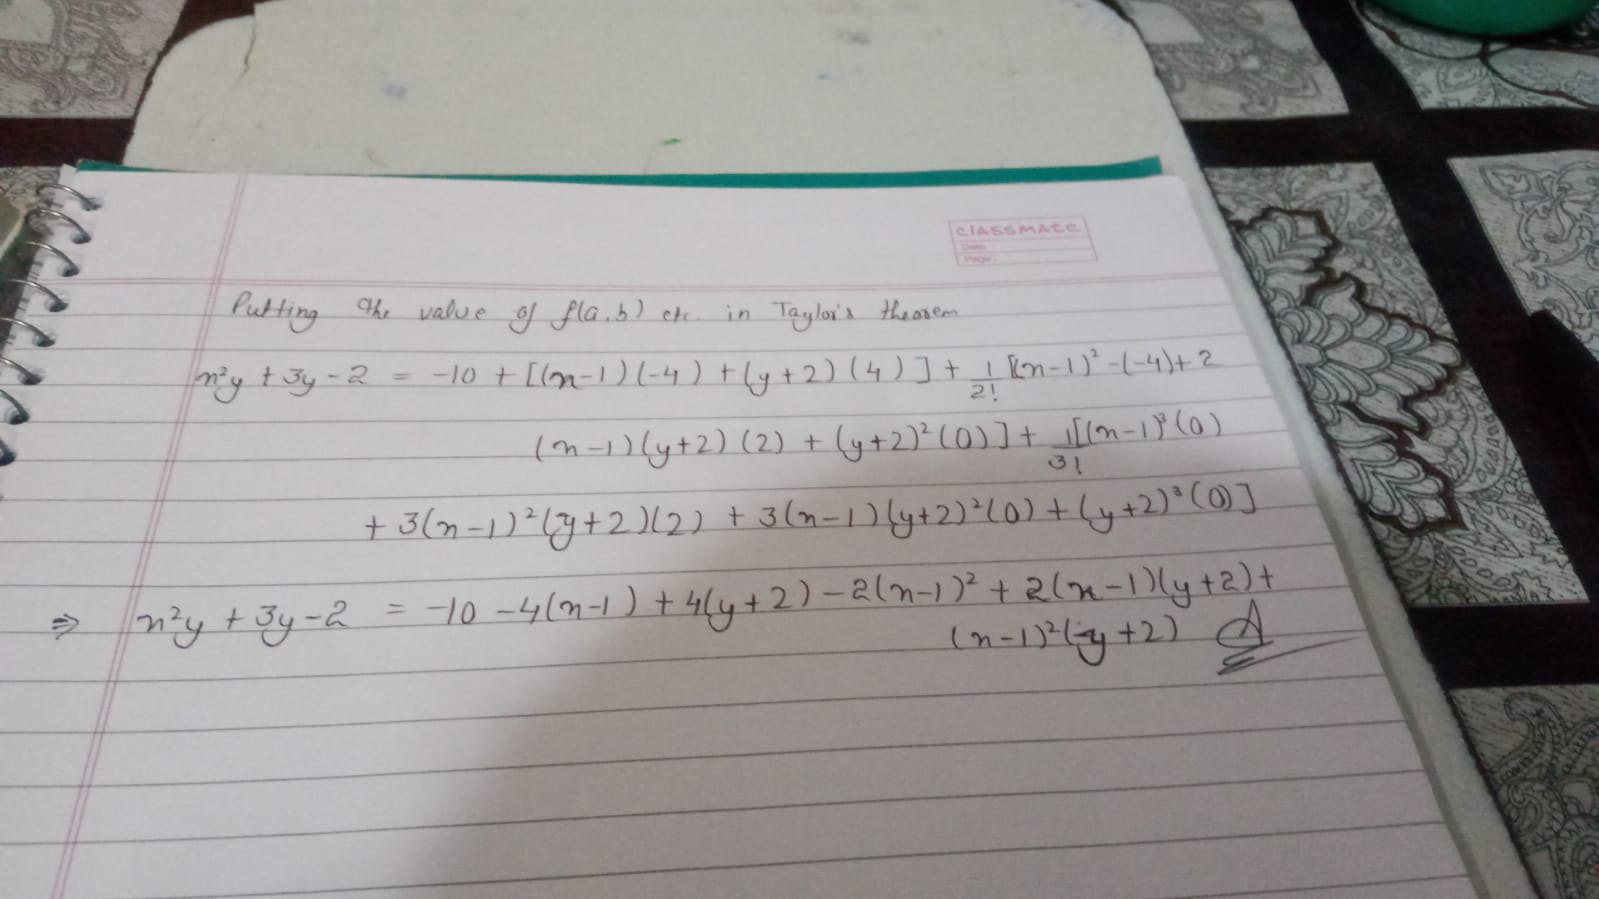 CLASSMATE
Date :
Page :
Putting the value of f(a,b) etc. in Taylor's theorem
x²y + 3y - 2 = -10 + [(x-1)(-4) + (y+2)(4)] + 1/2! [(x-1)² - (-4) + 2
(x-1)(y+2)(2) + (y+2)²(0)] + 1/3! [(x-1)³(0)
+ 3(x-1)²(y+2)(2) + 3(x-1)(y+2)²(0) + (y+2)³(0)]
⇒ x²y + 3y - 2 = -10 - 4(x-1) + 4(y+2) - 2(x-1)² + 2(x-1)(y+2) +
(x-1)²(y+2) A